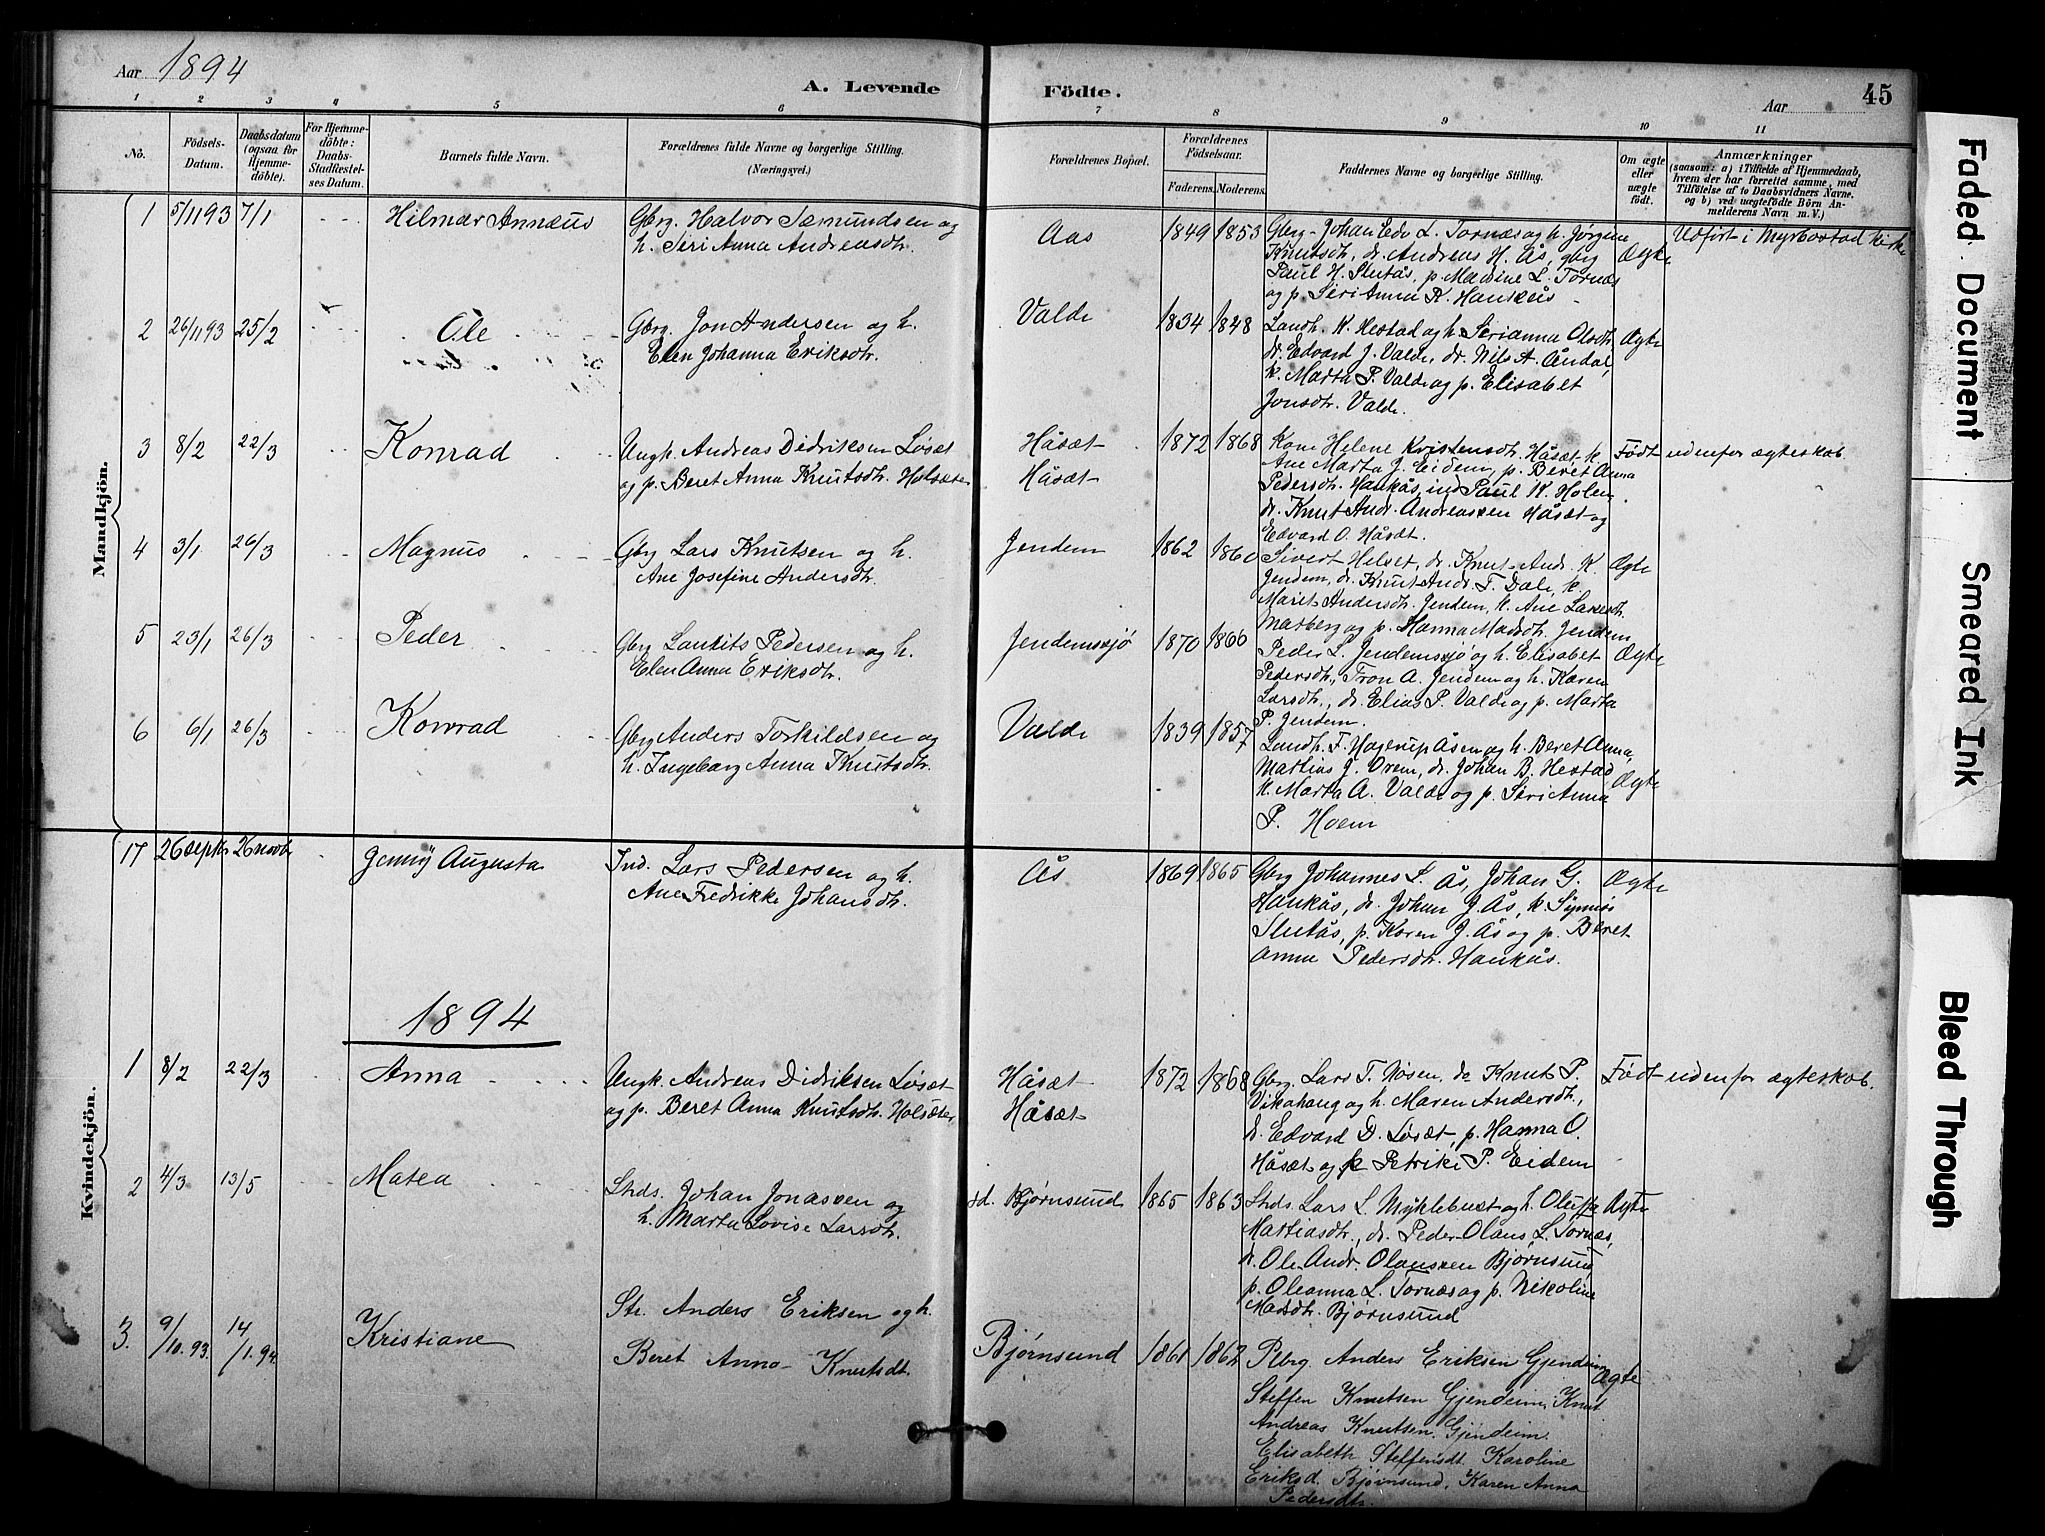 Aar 1894
A. Levende
Födte.
Aar
45
1 2 3 4 5 6 7 8 9 10 11
No.
Födsels-
Datum.
Daabsdatum
(ogsaa for
Hjemme-
döbte).
For Hjemme-
döbte:
Daabs-
Stadfæstel-
ses Datum.
Barnets fulde Navn.
Forældrenes fulde Navne og borgerlige Stilling.
(Næringsvei.)
Forældrenes Bopæl.
Forældrenes
Födselsaar.
Faderens. Moderens.
Faddernes Navne og borgerlige Stilling.
Om ægte
eller
uægte
födt.
Anmærkninger
(saasom: a) i Tilfælde af Hjemmedaab,
hvem der har forrettet samme, med
Tilföielse af to Daabsvidners Navne.
og b) ved uægtefödte Börn An-
melderens Navn m. V.)
Mandkjön.
1 5/11 93 7/1 Hilmar Annæus
Gbrg. Halvor Sæmundsen og
h. Seri Anna Andreasdtr.
Aas 1849 1853
Gbrg. Johan Edv. L. Tornæs og h. Jørgine
Knutsdtr., dr. Andreas H. Ås, gbrg
Paul H. Slutås, p. L. Tornæs
og p. Seri Anna K. Haukås
Ægte
Udført i Myrbostad kirke
2 26/11 93 25/2 Ole
Gbrg. Jon Andersen og h.
Elen Johanna Eriksdtr.
Valde 1834 1848
Landh. K. Hestad og h. Serianna Olsdtr.
dr. Edvard J. Valde, dr. Nils A. Åndal,
k. Marta P. Valde og p. Elisabet
Jonsdtr. Valde.
Ægte
3 8/2 22/3 Konrad
Ungk. Andreas Didriksen Løsæt
og p. Beret Anna Knutsdtr. Holsæter
Håsæt
Håsæt
1872 1868
Kone Helene Kristensdtr. Håsæt k.
Ane Marta J. Eidem, p. Beret Anna
Pedersdtr. Haukås, ind. Paul K. Holen
dr. Knut Andr. Andreassen Håsæt og
Edvard O. Håsæt.
Født udenfor ægteskab.
4 3/1 26/3 Magnus
Gbrg Lars Knutsen og h.
Ane Josefine Andersdtr.
Jendem 1862 1860
Sivert Helset, dr. Knut And. K.
Jendem, dr. Knut Andr. T. Dale, k.
Marit Andersdtr. Jendem, k. Ane Larsdtr.
Marberg og p. Hanna Madsdtr. Jendem
Ægte
5 23/1 26/3 Peder
Gbrg Laurits Pedersen og h.
Elen Anna Eriksdtr.
Jendemsjø 1870 1866
Peder L. Jendemsjø og h. Elisabet
Pedersdtr., Tron A. Jendem og h. Karen
Larsdtr., dr. Elias P. Valde og p. Marta
P. Jendem.
Ægte
6 6/1 26/3 Konrad
Gbrg Anders Torkildsen og
h. Ingeborg Anna Knutsdtr.
Valde 1839 1857
Landh. F. Hagerup Åsen og h. Beret Anna,
Martius J. Orem, dr. Johan B. Hestad
k. Marta A. Valde og p. Seri Anna
P. Hoem
Ægte
Kvindekjön.
17 26 septr 26 novb Jenny Augusta
Ind. Lars Pedersen og h.
Ane Fredrikke Johansdtr.
Ås 1869 1865
Gbrg Johannes L. Ås, Johan G.
Haukås, dr. Johan J. Ås, k. Synnøv
Slutås, p. Karen J. Ås og p. Beret
Anna Pedersdtr. Haukås.
Ægte
1894
1 8/2 22/3 Anna
Ungk. Andreas Didriksen Løsæt
og p. Beret Anna Knutsdtr. Holsæter,
Håsæt
Håsæt
1872 1868
Gbrg. Lars T. Nøsen, do Knut P.
Vikahaug og h. Maren Andersdtr.,
dr. Edvard D. Løsæt, p. Hanna O.
Håsæt og k Petrike P. Eidem
Født udenfor ægteskab.
2 4/3 13/5 Matea
Strds. Johan Jonassen og
h. Marta Lovise Larsdtr.
Bjørnsund 1865 1863
Strds. Lars L. Myklebust og h. Oluffa
Mattiasdtr., dr. Peder Olaus L. Tornæs,
dr. Ole Andr. Olaussen Bjørnsund
p. Oleanna L. Tornæs og p. Nikoline
Madsdtr. Bjørnsund
Ægte
3. 9/10. 93. 14/1. 94. Kristiane
Str. Anders Eriksen og h.
Beret Anna Knutsdt.
Bjørnsund 1861 1862
Plbrg. Anders Eriksen Gjendeim
Steffen Knutsen Gjendeim, Knut
Andreas Knutsen Gjendeim.
Elisabeth Steffensdt. Karoline
Eriksd. Bjørnsund, Karen Anna
Pedersdtr.
Ægte
Faded Document
Smeared Ink
Bleed Through